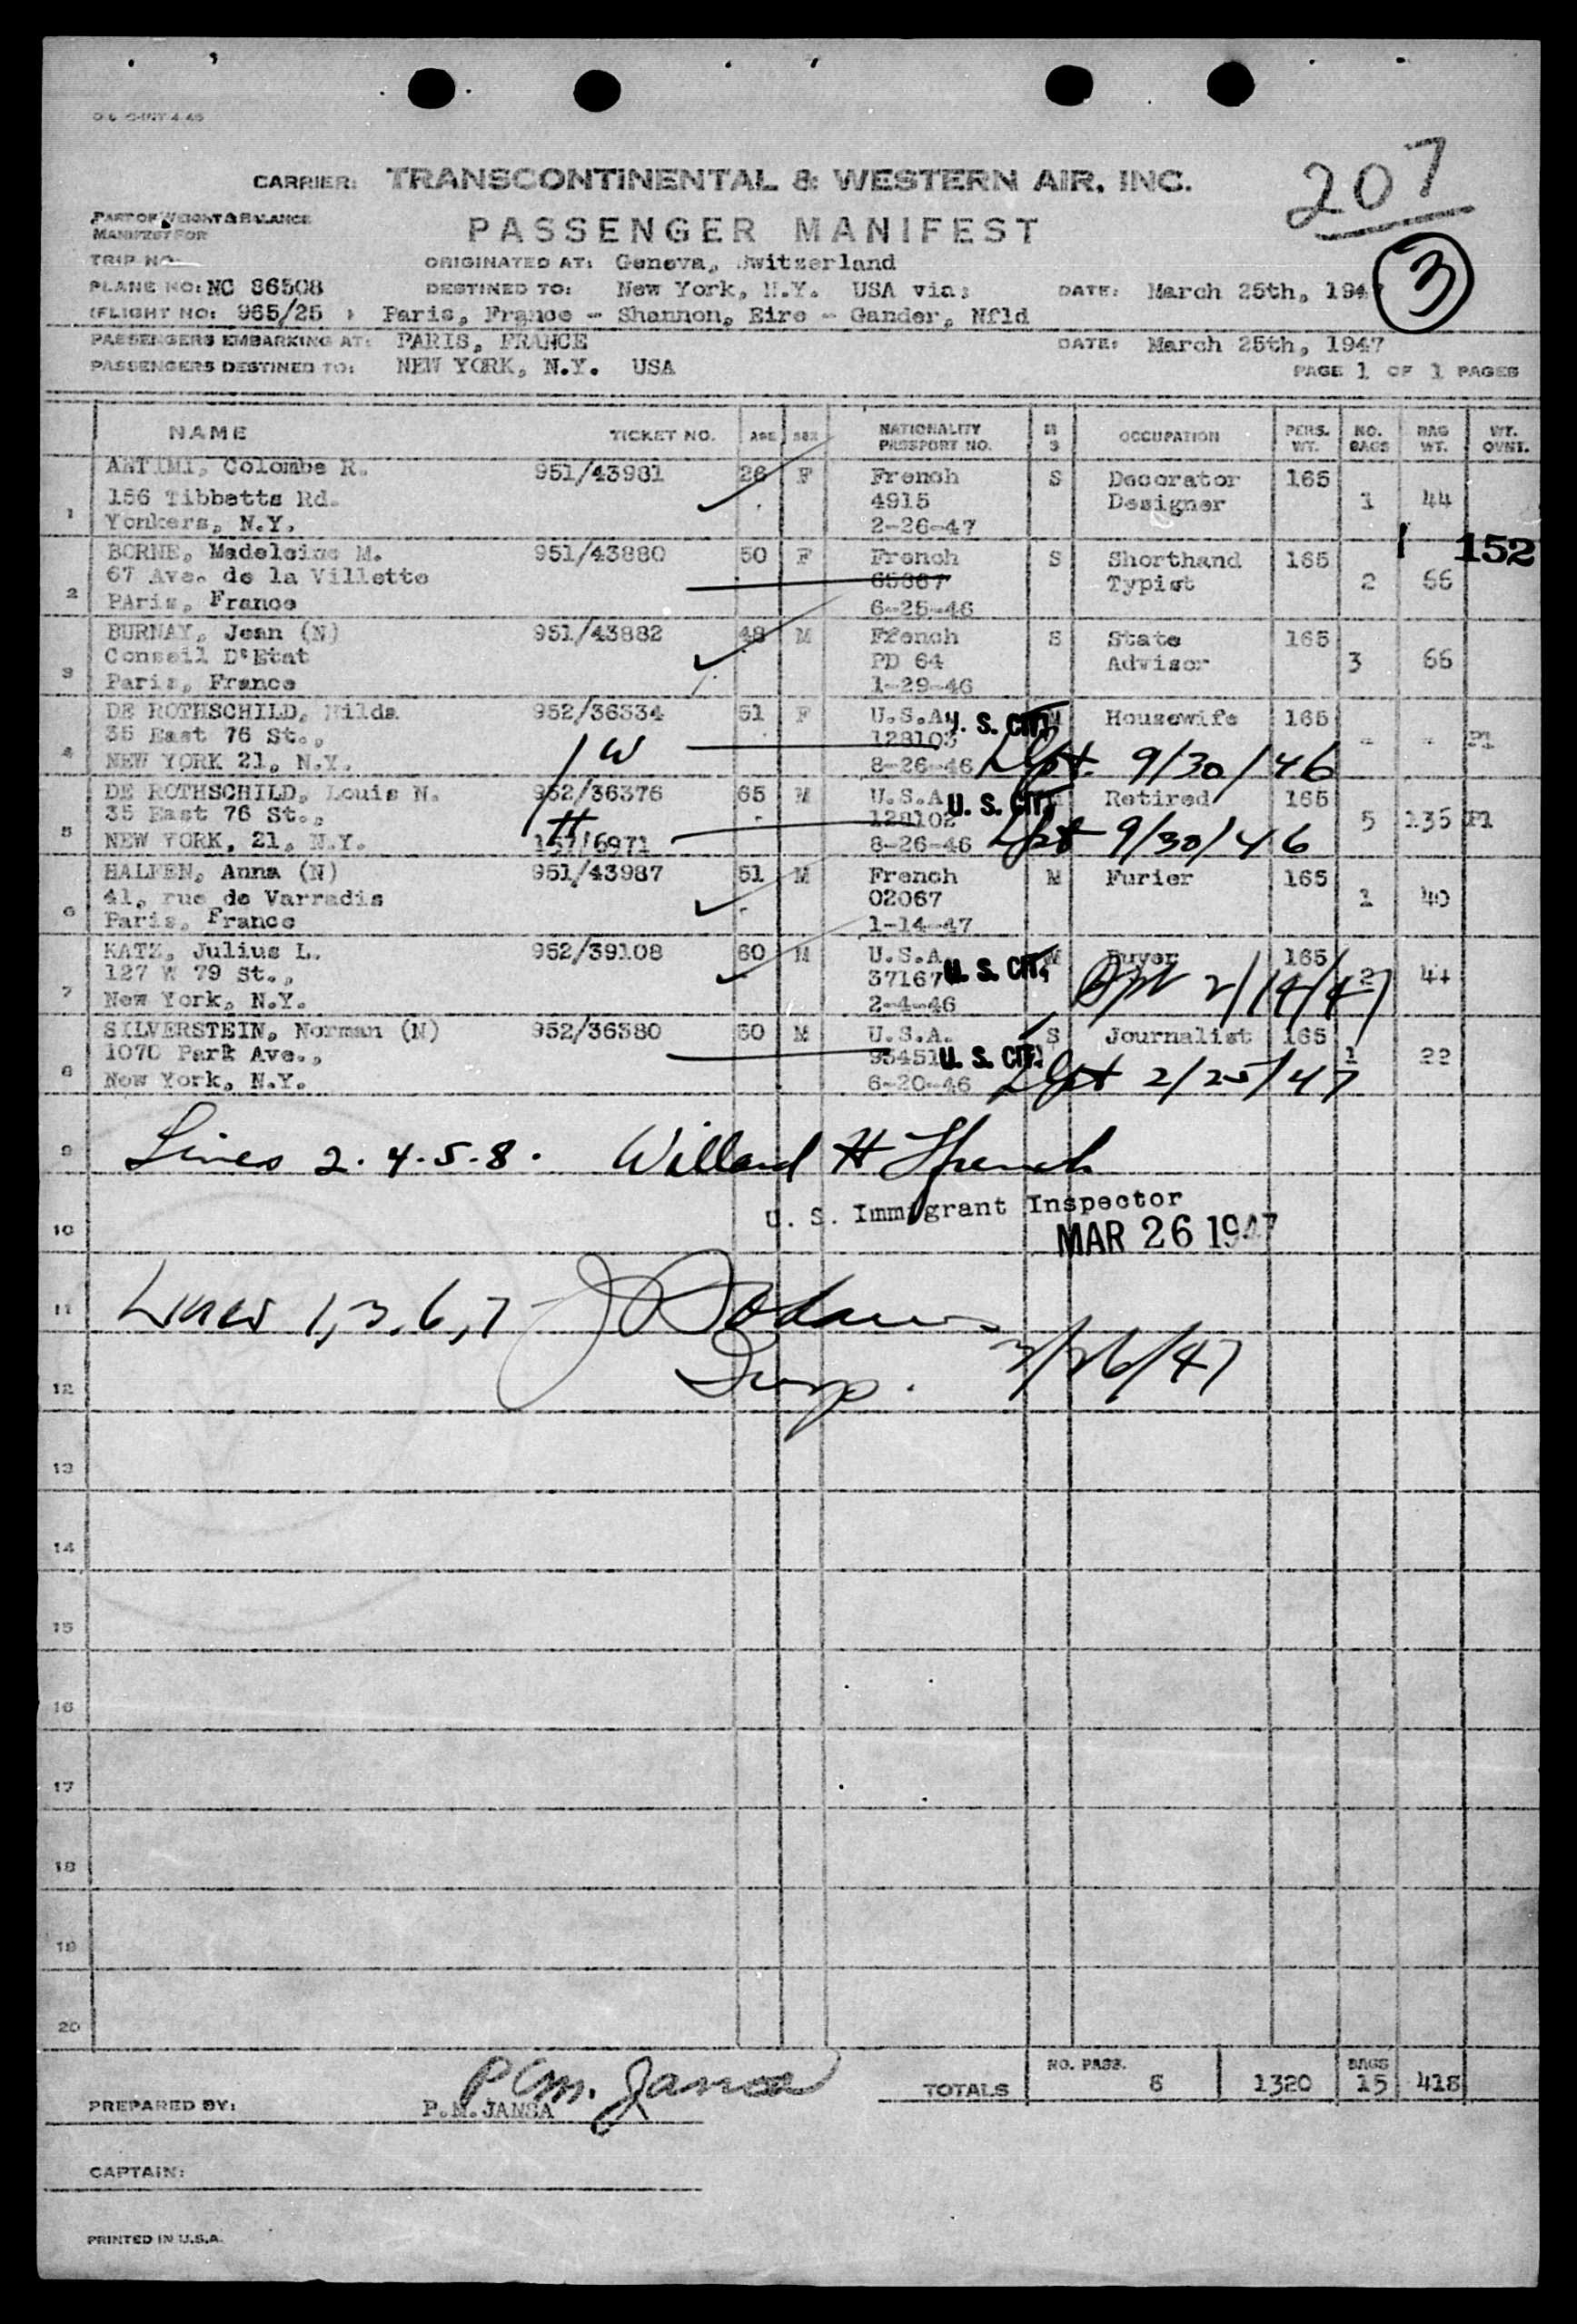 CARRIER: TRANSCONTINENTAL & WESTERN AIR, INC.
207
PART OF WEIGHT & BALANCE
MANIFEST FOR
PASSENGER MANIFEST
3
TRIP NO.
ORIGINATED AT: Geneva, Switzerland
PLANE NO: NC 86508 DESTINED TO: New York, N.Y. USA via: DATE: March 25th, 194
(FLIGHT NO: 965/25 ) Paris, France - Shannon, Eire - Gander, Nfld
PASSENGERS EMBARKING AT: PARIS, FRANCE DATE: March 25th, 1947
PASSENGERS DESTINED TO: NEW YORK, N.Y. USA PAGE 1 OF 1 PAGES
NAME TICKET NO. AGE SEX NATIONALITY PASSPORT NO. M S OCCUPATION PERS. WT. NO. BAGS BAG WT. WT. OVWT.
Colombe R. 951/43981 26 F French S Decorator 165
156 Tibbetts Rd. 4915 Designer 1 44
1 Yonkers, N.Y. 2-26-47
152
BORNE, Madeleine M. 951/43880 50 F French S Shorthand 165
67 Ave. de la Villette 65887 Typist 2 66
2 PAris, France 6-25-46
BURNAY, Jean (N) 951/43882 48 M French S State 165
Conseil D'Etat PD 64 Advisor 3 66
3 Paris, France 1-29-46
DE ROTHSCHILD, Hilda 952/36334 51 F U.S.A. U. S. CIT. M Housewife 165
35 East 76 St., W 128103 - - P1
4 NEW YORK 21, N.Y. 8-26-46 Dpt. 9/30/46
DE ROTHSCHILD, Louis N. 952/36376 65 M U.S.A. U. S. CIT. M Retired 165
35 East 76 St., H 128102 5 136 P1
5 NEW YORK, 21, N.Y. 157/6971 8-26-46 Dpt 9/30/46
HALFEN, Anna (N) 951/43987 51 M French M Furier 165
41, rue de Varradis 02067 1 40
6 Paris, France 1-14-47
KATZ, Julius L. 952/39108 60 M U.S.A. U. S. CIT. M Buyer 165
127 W 79 St., 37167 2 44
7 New York, N.Y. 2-4-46 Dpt 2/14/47
SILVERSTEIN, Norman (N) 952/36380 50 M U.S.A. S Journalist 165
1070 Park Ave., 95451 U. S. CIT. 1 22
8 New York, N.Y. 6-20-46 Dpt 2/25/47
9 Lines 2. 4. 5. 8. Willard H French
U. S. Immigrant Inspector
10
MAR 26 1947
11 Lines 1, 3, 6, 7
12 Insp. 3/26/47
13
14
15
16
17
18
19
20
P.M. Jansa
PREPARED BY: P.M.JANSA TOTALS NO. PASS. 8 1320 BAGS 15 418
CAPTAIN:
PRINTED IN U.S.A.